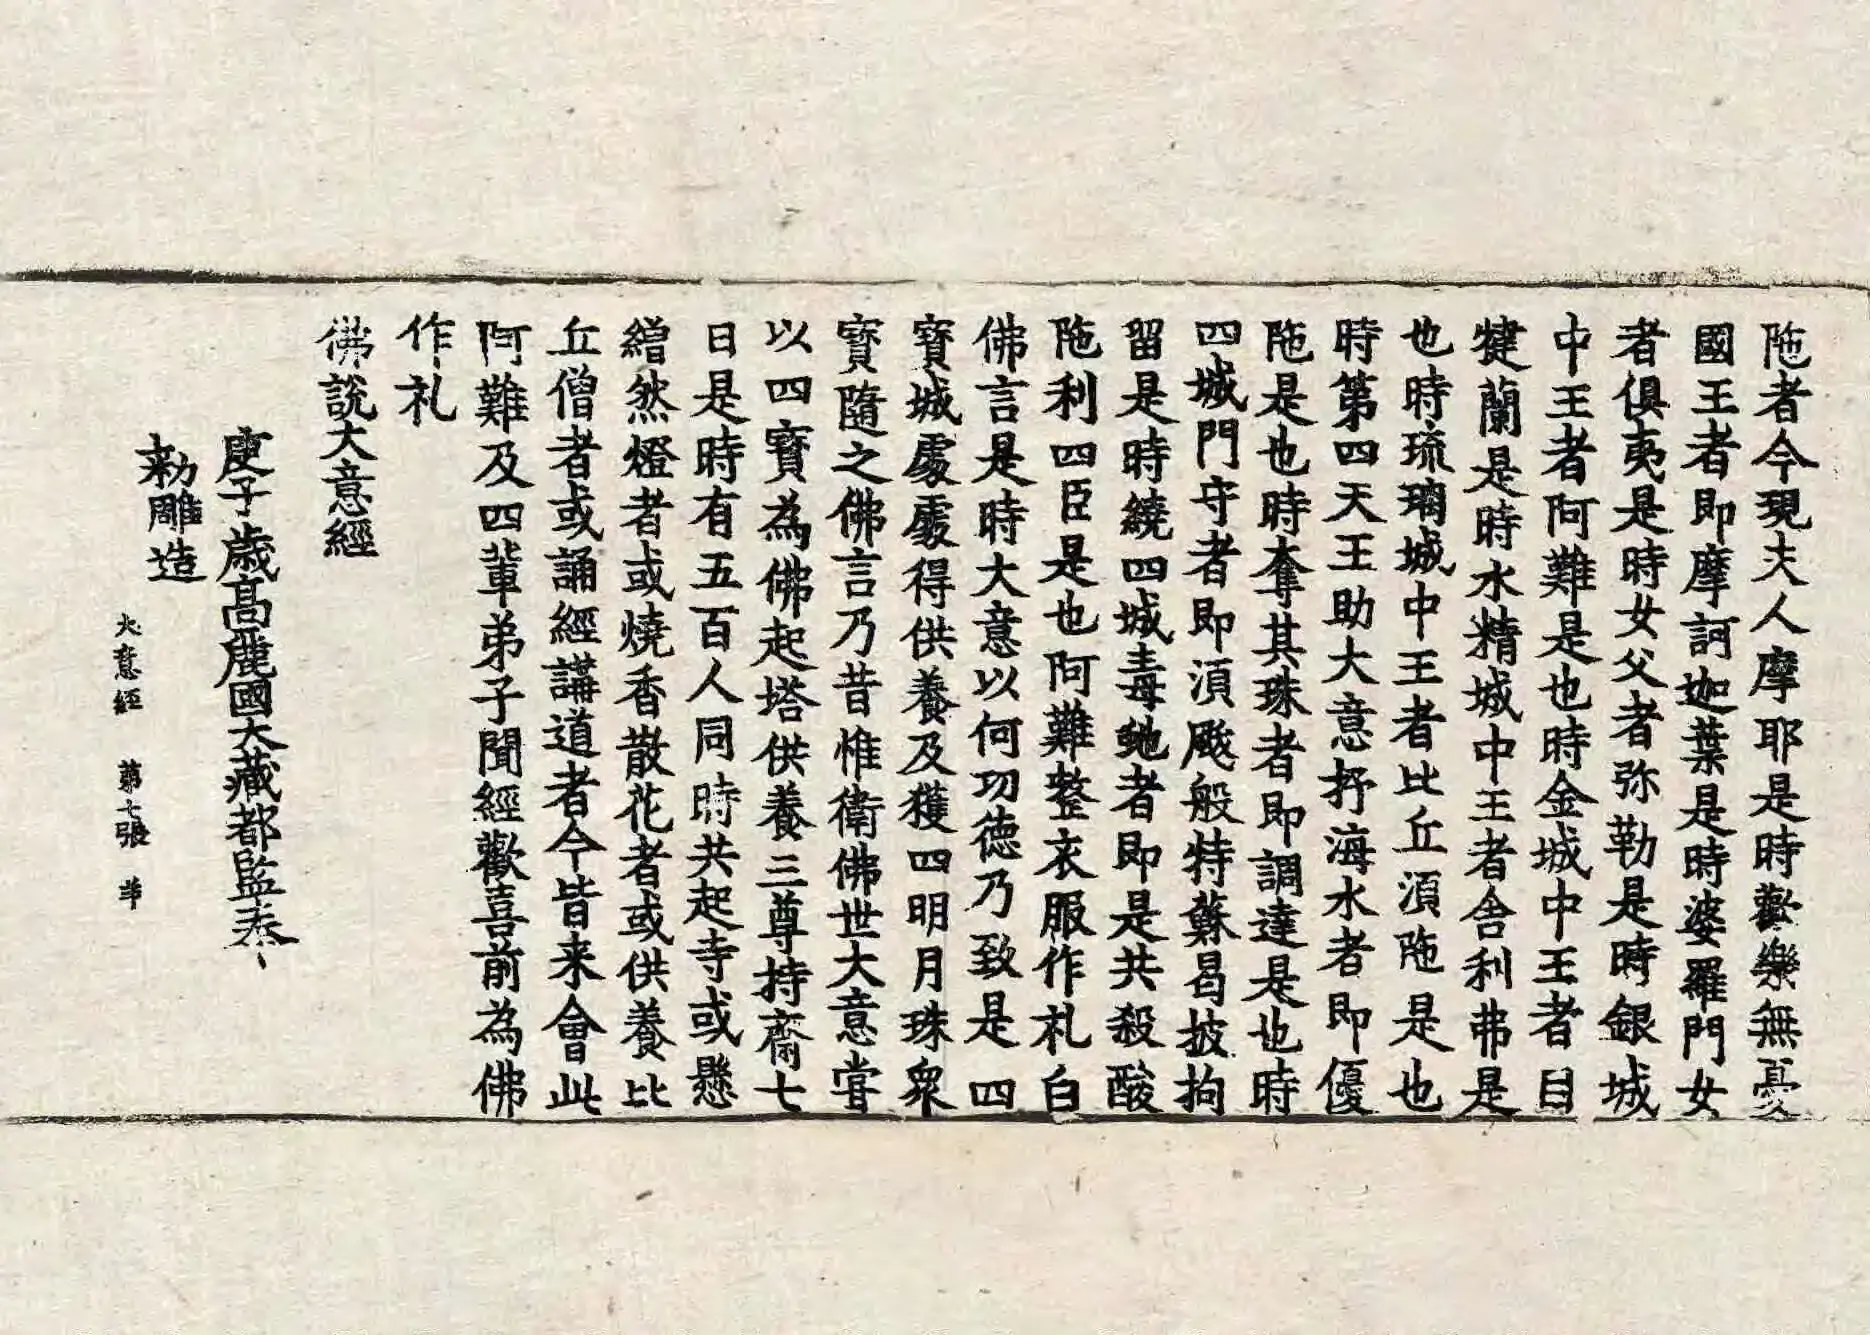 陁者今現夫人摩耶是時歡樂無憂
國王者即摩訶迦葉是時婆羅門女
者俱夷是時女父者弥勒是時銀城
中王者阿難是也時金城中王者目
揵蘭是時水精城中王者舎利弗是
也時琉璃城中王者比丘湏陁是也
時第四天王助大意抒海水者即優
陁是也時奪其珠者即調達是也時
四城門守者即湏颰般特蘇曷披拘
留是時繞四城毒虵者即是共殺酸
陁利四臣是也阿難整衣服作礼白
佛言是時大意以何功德乃致是四
寶城處處得供養及獲四明月珠衆
寶隨之佛言乃昔惟衛佛世大意甞
以四寶為佛起塔供養三尊持齋七
日是時有五百人同時共起寺或懸
繒然燈者或燒香散花者或供養比
丘僧者或誦經講道者今皆来會此
阿難及四輩弟子聞經歡喜前為佛
作礼
佛說大意經
庚子歲高麗國大藏都監奉
勑雕造
大意経 第七張